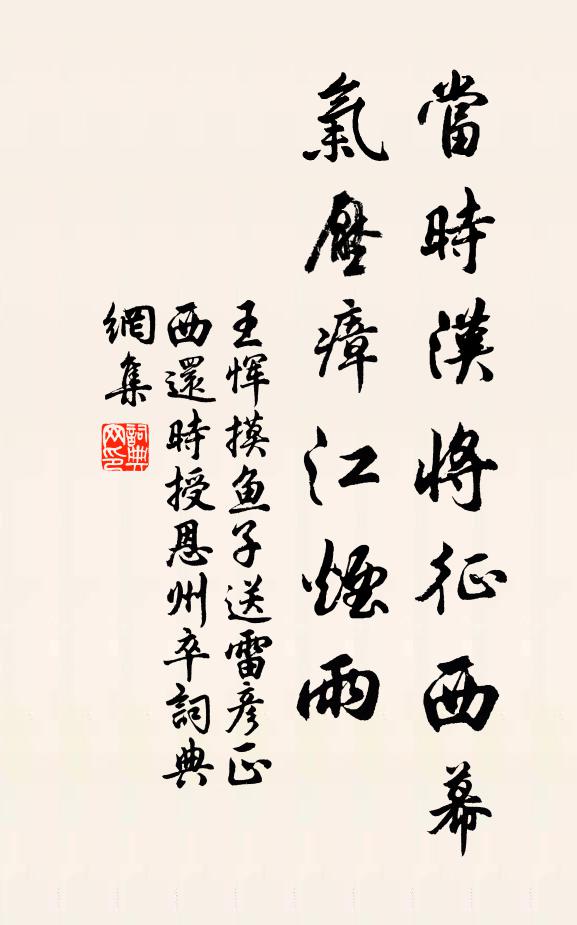 當時漢將征西幕
氣壓瘴江煙雨
王惲摸鱼子送雷彦正
西還時授恩州卒詞典
網集
詞典
网印